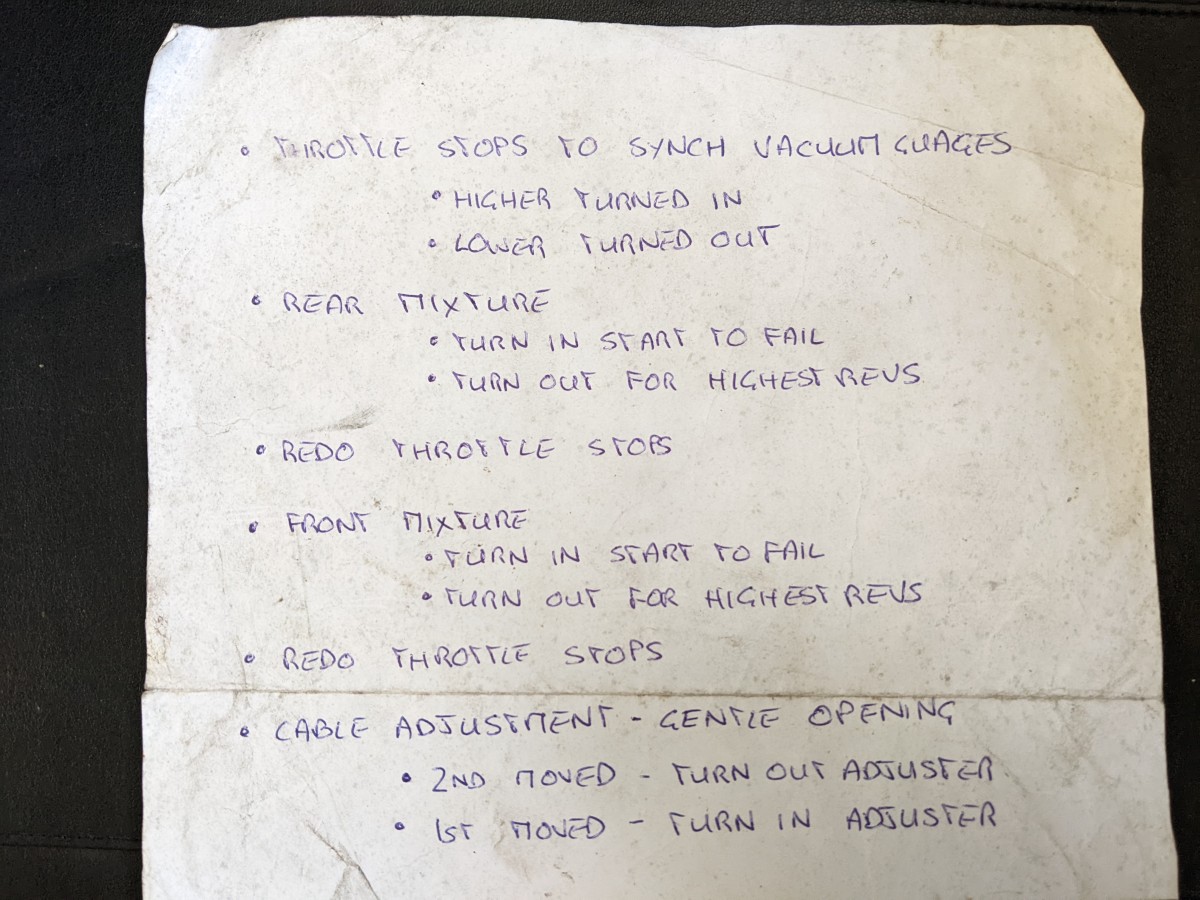 • THROTTLE STOPS TO SYNCH VACUUM GUAGES
• HIGHER TURNED IN
• LOWER TURNED OUT
• REAR MIXTURE
• TURN IN START TO FAIL
• TURN OUT FOR HIGHEST REVS
• REDO THROTTLE STOPS
• FRONT MIXTURE
• TURN IN START TO FAIL
• TURN OUT FOR HIGHEST REVS
• REDO THROTTLE STOPS
• CABLE ADJUSTMENT - GENTLE OPENING
• 2ND MOVED - TURN OUT ADJUSTER
• 1ST MOVED - TURN IN ADJUSTER